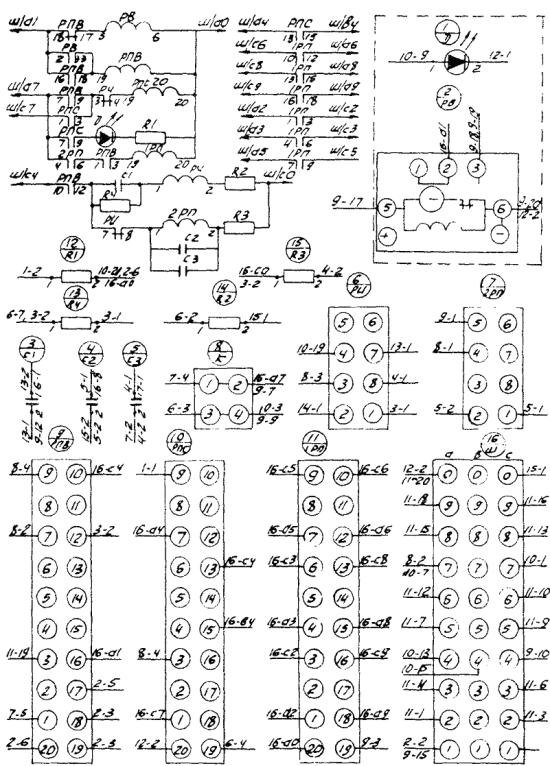 ш/а1
РПВ
РВ
ш/а0
ш/а4
РПС
ш/в4
18
17
3
6
13
15
РВ
РПВ
ш/с6
1РП
ш/а6
2
10
12
ш/с8
1РП
ш/а8
ш/а7
РПВ
РЧ
РПС
20
ш/с9
1РП
ш/а9
7
9
3
4
19
20
16
18
ш/с7
РПС
ш/а2
1РП
ш/с2
1
3
1
3
РПС
Л
R1
ш/а3
1РП
ш/с3
7
9
4
6
2РП
РПВ
1РП
ш/а5
1РП
ш/с5
4
6
1
3
19
20
7
9
ш/с4
РПВ
C1
РЧ
R2
ш/с0
10
12
R4
1
2
РЧ
2РП
R3
7
8
1
2
C2
C3
1
Л
10-9
12-1
1
2
2
РВ
16-а1
9-17
1
2
3
5
6
+
−
−
12
R1
1-2
16-а0
1
2
13
R4
6-7, 3-2
3-1
1
2
15
R3
16-с0
3-2
4-2
1
2
14
R2
6-2
15-1
1
2
6
РЧ
5
6
10-19
4
7
13-1
8-3
3
8
4-1
14-1
2
1
3-1
7
2РП
9-1
5
6
8-1
4
7
3
8
5-2
2
1
5-1
3
C1
4
C2
5
C3
13-1
9-12
15-2
5-2
7-2
4-2
8
К
7-4
1
2
16-а7
9-7
6-3
3
4
10-3
9-9
9
РПВ
8-4
9
10
16-с4
8
11
8-2
7
12
3-2
6
13
5
14
4
15
11-19
3
16
16-а1
2
17
2-5
7-5
1
18
2-3
2-6
20
19
2-3
10
РПС
1-1
9
10
8
11
16-а4
7
12
6
13
16-с4
5
14
4
15
16-в4
8-4
3
16
2
17
16-с7
1
18
12-2
20
19
6-4
11
1РП
16-с5
9
10
16-с6
8
11
16-а5
7
12
16-а6
16-с3
6
13
16-с8
5
14
16-а3
4
15
16-а8
16-с2
3
16
16-с9
2
17
16-а2
1
18
16-а9
16-а0
20
19
9-3
16
Ш
а
в
с
12-2
11-20
0
0
0
15-1
11-18
9
9
9
11-16
11-15
8
8
8
11-13
8-2
10-7
7
7
7
10-1
11-12
6
6
6
11-10
11-7
5
5
5
11-9
10-13
4
4
4
9-10
10-15
11-4
3
3
3
11-6
11-1
2
2
2
11-3
2-2
9-15
1
1
1